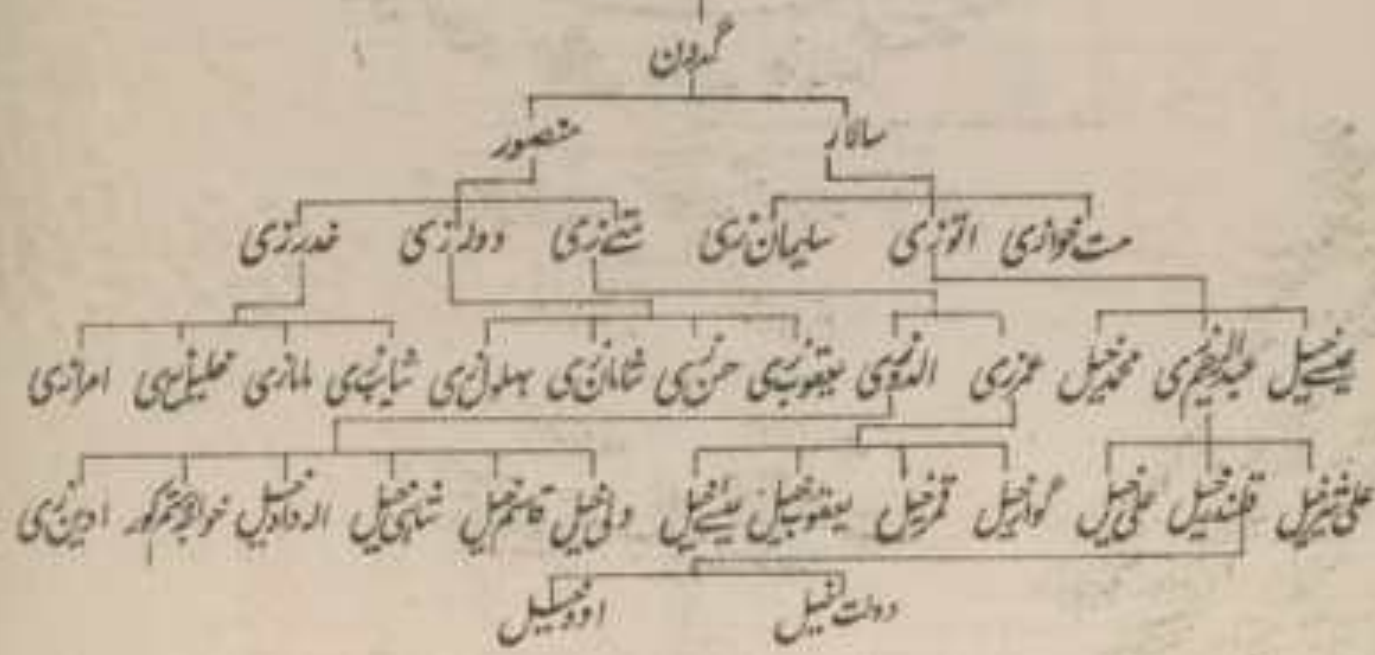 گدون
سالار منصور
مت خوازی اتوزی سلیمان زی تتے زی دولرزی خدرزی
عیسے خیل عبدالرحیم زی محمد خیل عمرزی یعقوب زی حسن زی شامان زی بہلول زی مامازی خلیل زی امرازی
علی شیر خیل قلندر خیل علی خیل گواخیل قمر خیل یعقوب خیل عیسے خیل ولی خیل قاسم خیل شاہی خیل الہ داد خیل ادین زی
دولت خیل